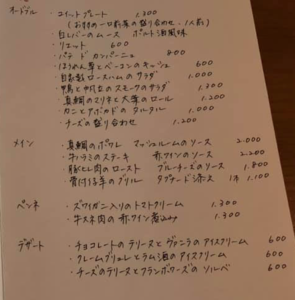 オードブル ・コイットプレート 1,300
(おすすめ一口前菜の盛り合わせ・1人前)
・白レバーのムース ポルト酒風味
・リエット 600
・パテ ド カンパーニュ 800
・ほうれん草とベーコンのキッシュ 600
・自家製ロースハムのサラダ 1,000
・鴨と中乃のスモークサラダ 1,200
・真鯛のマリネと大葉のロール 1,200
・カニとアボカドのタルタル 1,200
・チーズの盛り合わせ 1,200
メイン ・真鯛のポワレ マッシュルームのソース 2,000
・牛ハラミのステーキ 赤ワインのソース 2,200
・豚ヒレ肉のロースト ブルーチーズのソース 1,800
・骨付仔羊のグリル タプナード添え 1本 1,100
ペンネ ・ズワイガニ入りのトマトクリーム 1,300
・牛スネ肉の赤ワイン煮込み 1,300
デザート ・チョコレートのテリーヌとヴァニラのアイスクリーム 600
・クレームブリュレとラム酒のアイスクリーム 600
・チーズのテリーヌとフランボワーズのソルベ 600